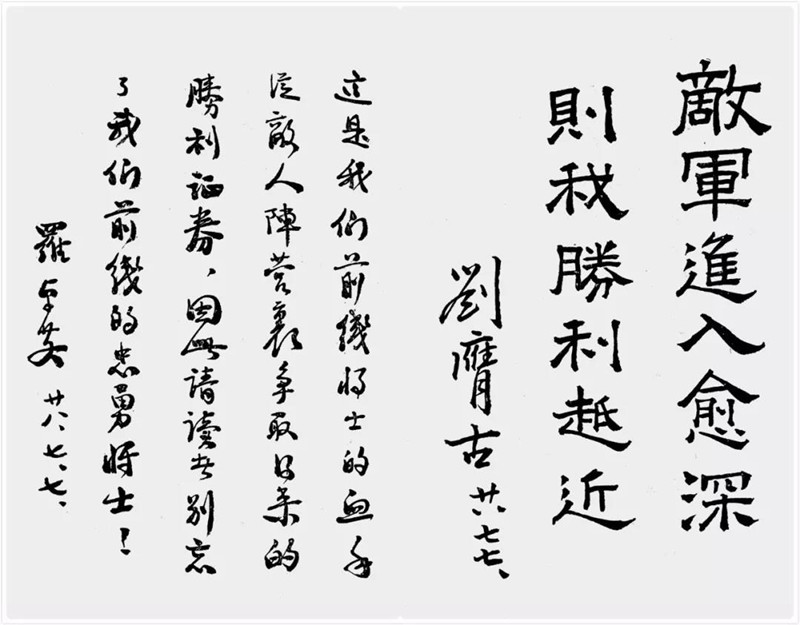 敵軍進入愈深
則我勝利越近
劉膺古 廿八七七、
這是我们前綫將士的血手
從敵人陣营裏争取得来的
勝利証券、因此請讀者别忘
了我们前綫的忠勇將士！
羅卓英 廿八、七、七、